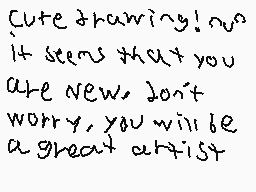 cute drawing! nun
it seems that you
are new. don't
worry, you will be
a great artist